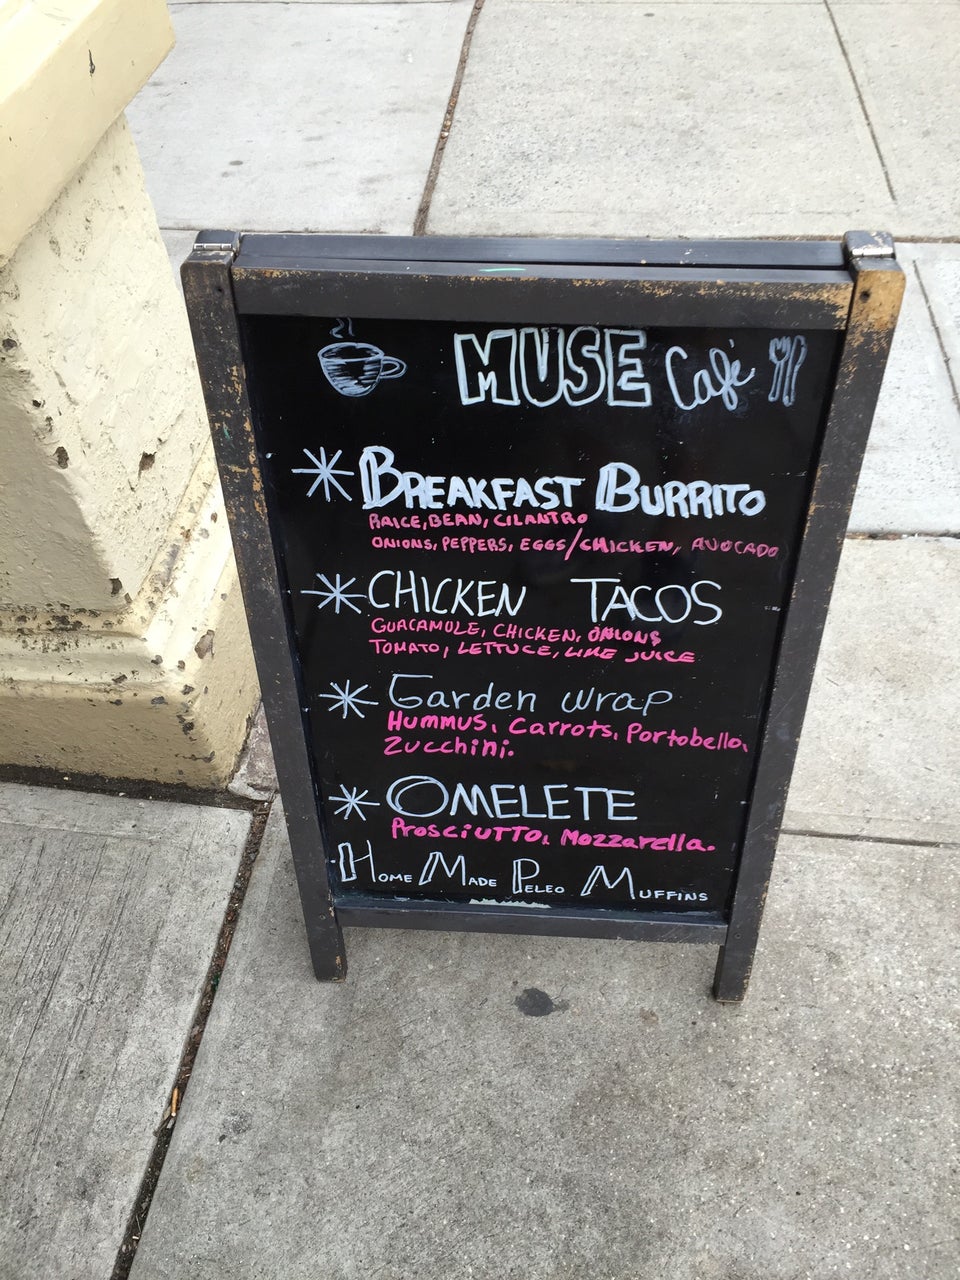 MUSE Café
BREAKFAST BURRITO
RAICE, BEAN, CILANTRO
ONIONS, PEPPERS, EGGS/CHICKEN, AVOCADO
CHICKEN TACOS
GUACAMOLE, CHICKEN, ONIONS
TOMATO, LETTUCE, LIME JUICE
Garden wrap
HUMMUS, Carrots, Portobello,
Zucchini.
OMELETE
ProsciuTTO, Mozzarella.
HOME MADE PELEO MUFFINS